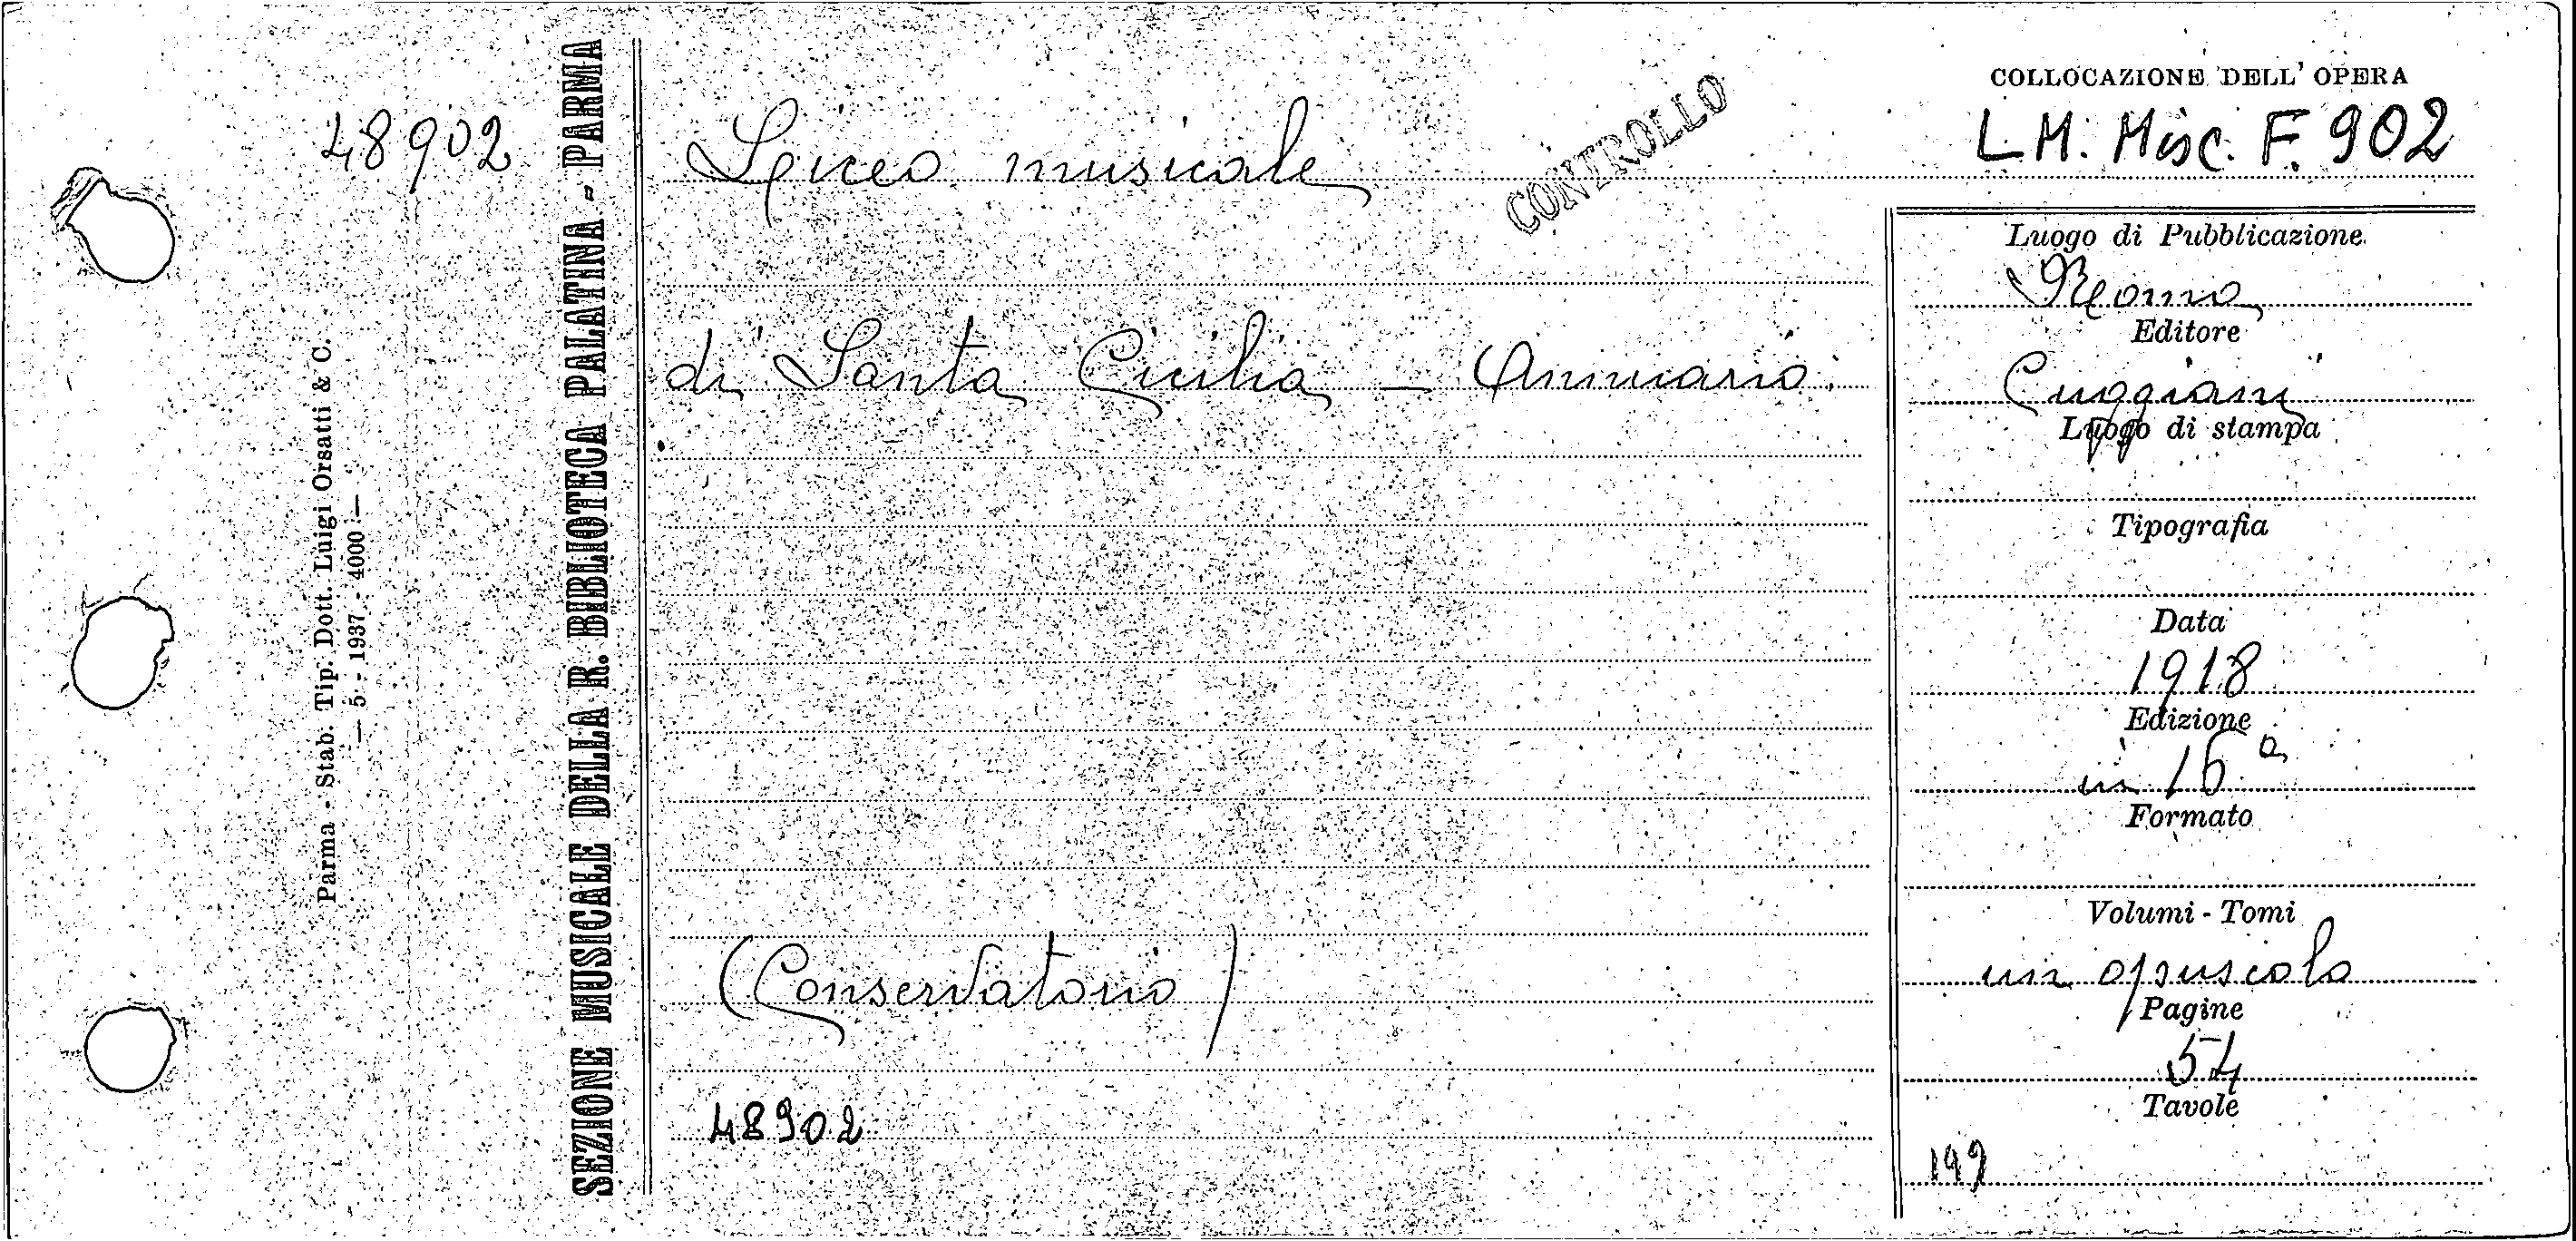 48902
Parma - Stab. Tip. Dott. Luigi Orsatti & C.
— 5 - 1937 - 4000 —
SEZIONE MUSICALE DELLA R. BIBLIOTECA PALATINA - PARMA
Liceo musicale
CONTROLLO
di Santa Cecilia - Annuario
(Conservatorio)
48902
COLLOCAZIONE DELL' OPERA
L.M. Misc. F. 902
Luogo di Pubblicazione
Roma
Editore
Cuggiani
Luogo di stampa
Tipografia
Data
1918
Edizione
in 16°
Formato
Volumi - Tomi
un opuscolo
Pagine
54
Tavole